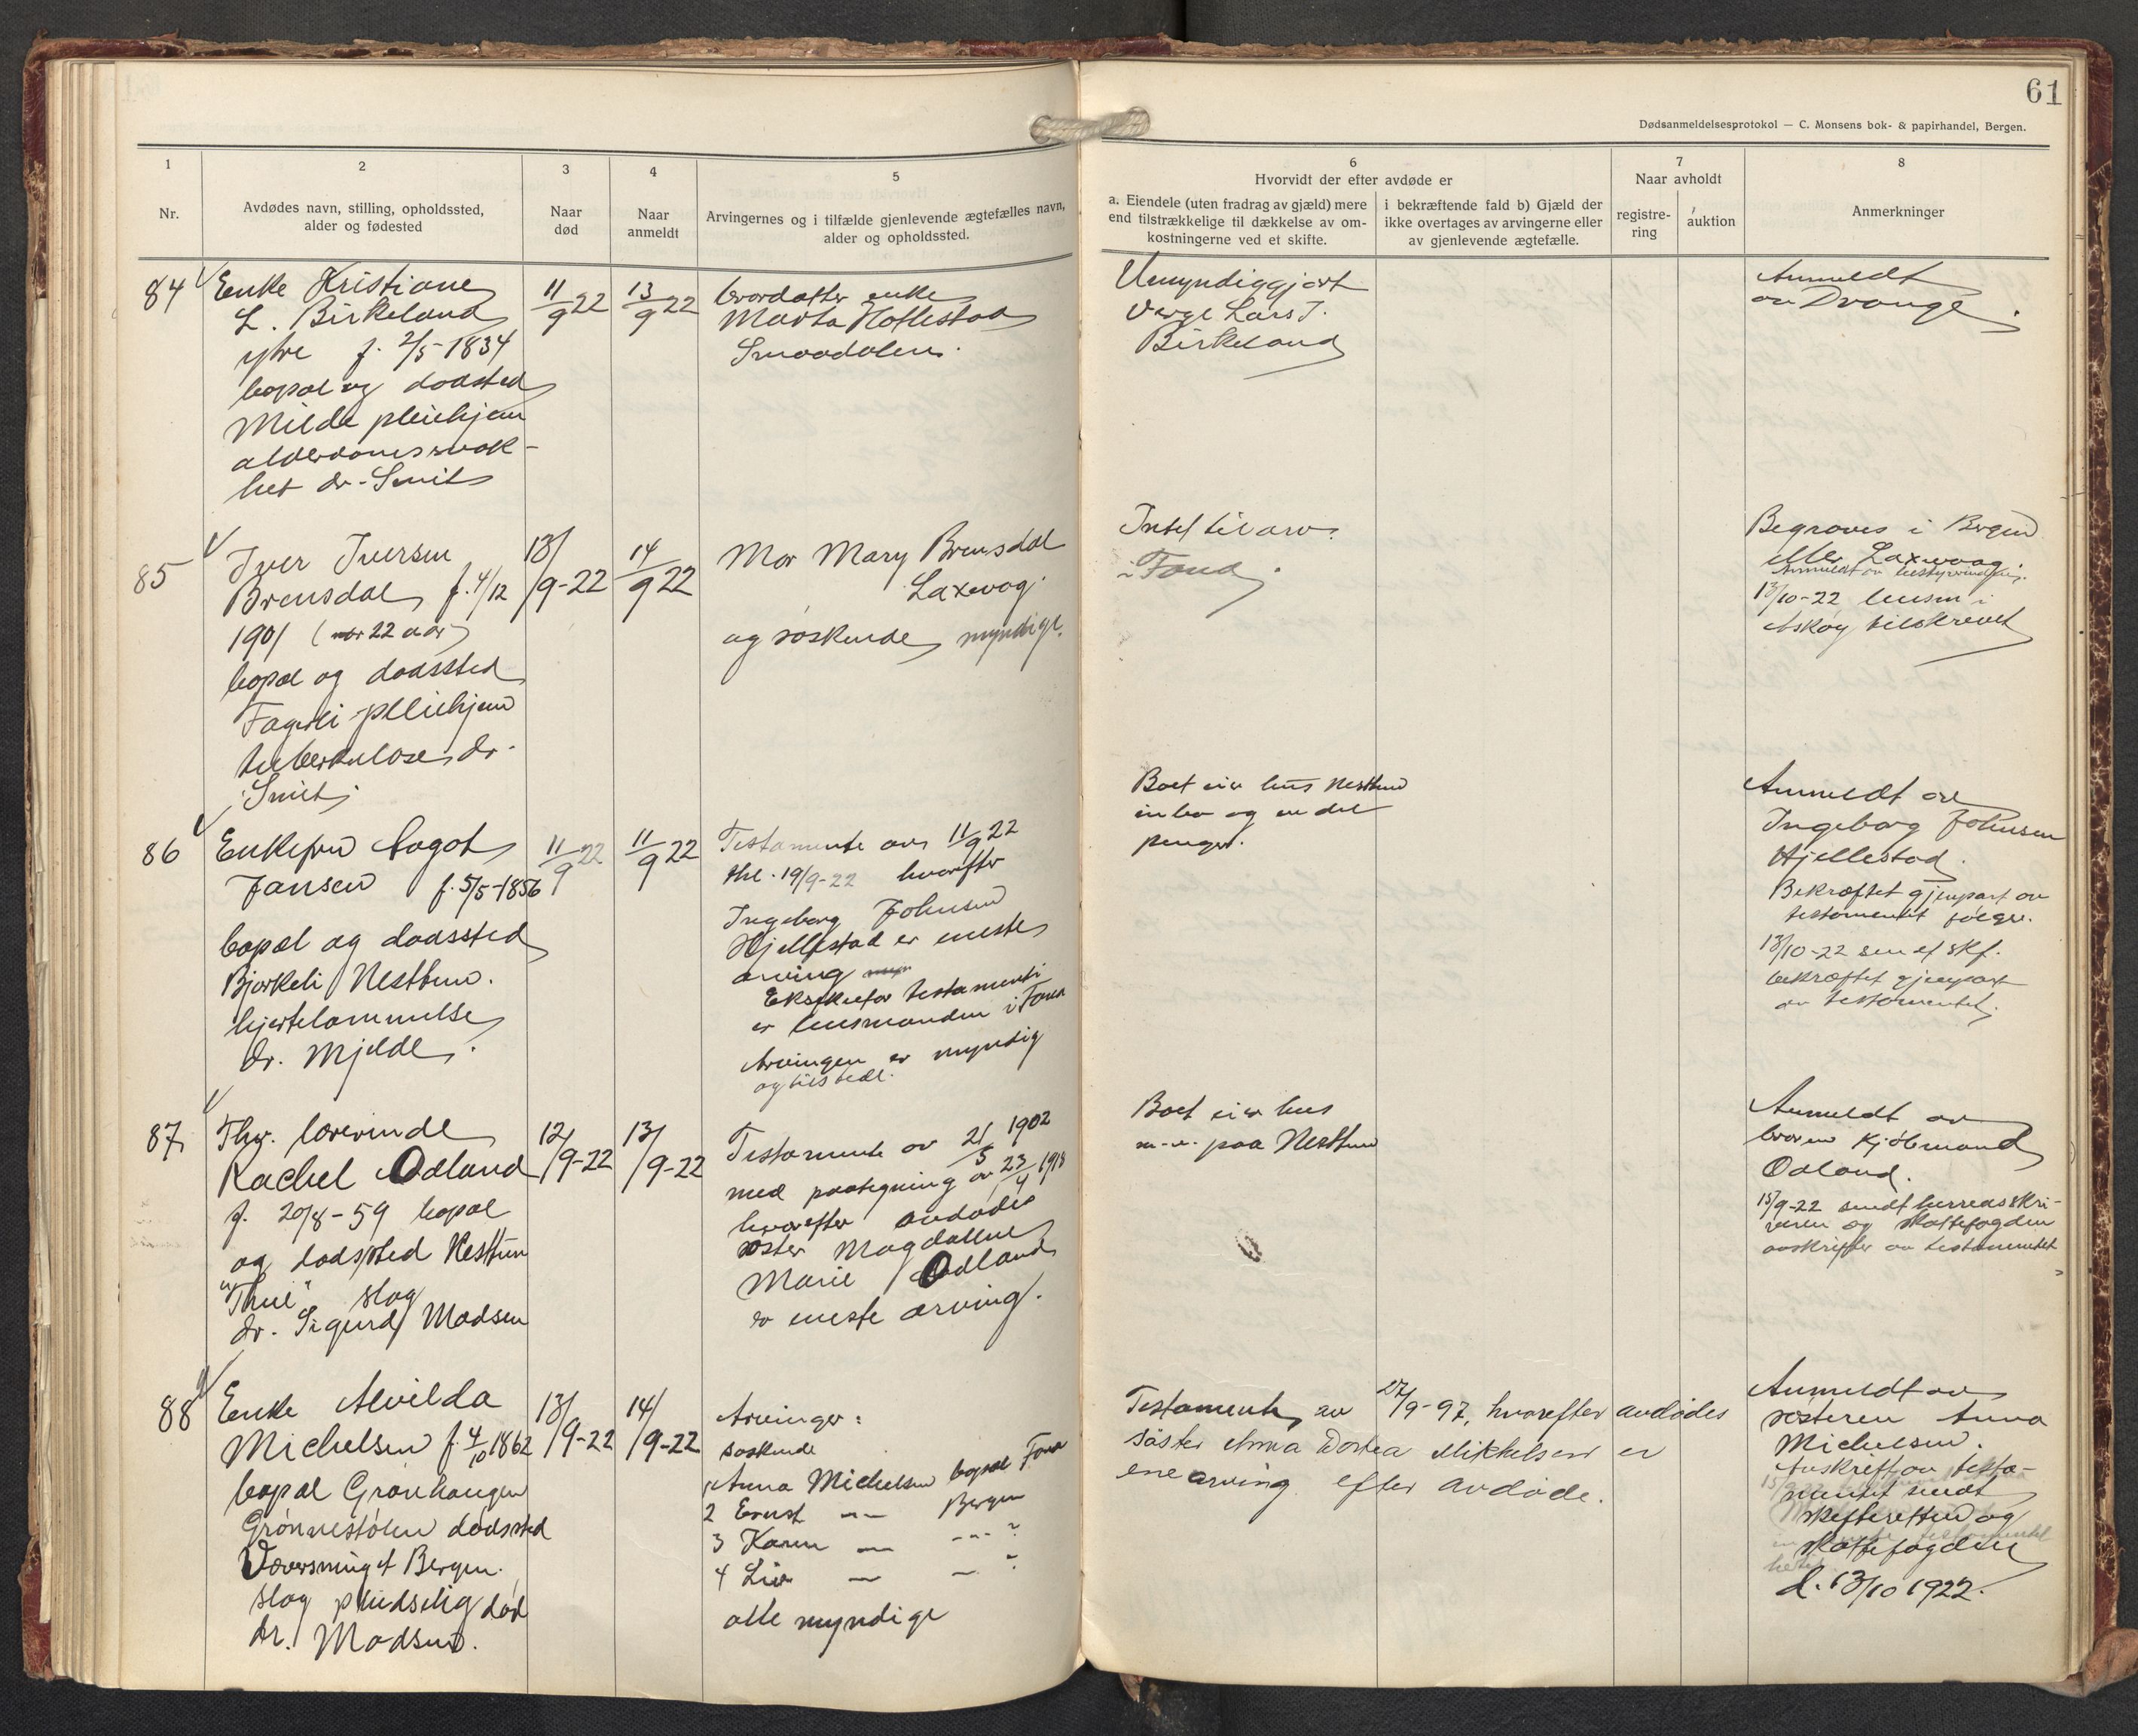 61
Dødsanmeldelsesprotokol — C. Monsens bok- & papirhandel, Bergen.
1
Nr.
2
Avdødes navn, stilling, opholdssted,
alder og fødested
3
Naar
død
4
Naar
anmeldt
5
Arvingernes og i tilfælde gjenlevende ægtefælles navn,
alder og opholdssted.
6
Hvorvidt der efter avdøde er
a. Eiendele (uten fradrag av gjæld) mere
end tilstrækkelige til dækkelse av om-
kostningerne ved et skifte.
i bekræftende fald b) Gjæld der
ikke overtages av arvingerne eller
av gjenlevende ægtefælle.
7
Naar avholdt
registre-
ring
auktion
8
Anmerkninger
84
Enke Kristiane
L. Birkeland
ytre f. 2/5-1834
bopæl og dødsted
Milde pleiehjem
alderdomssvak-
het dr. Smit
11/9 22
13/9 22
brordatter enke
Marta Hatlestad
Smaadalen.
Umyndiggjort
Verge Lars J.
Birkeland
Anmeldt
av Drange.
85
Iver Iversen
Brensdal f. 4/12
1901 (22 aar)
bopæl og dødssted
Fagerli pleiehjem
tuberkulose dr.
Smit
13/9-22
14/9 22
Mor Mary Brensdal
Laxevog.
og søskende myndige.
Intet til arv
i Fana.
Begraves i Bergen
eller Laxevaag.
Anmeldt av bestyrerinden.
13/10-22 lensm i
Askøy tilskrevet
86
Enkefru Aagot
Jansen f. 5/5-1856
bopæl og dødssted
Bjørkeli Nesttun.
hjertelammelse
dr. Mjelde.
11/9 22
11/9 22
Testamente av 11/9 22
thl. 19/9-22 hvorefter
Ingeborg Johnsen
Hjellestad er eneste
arving
Eksekutor testamenti
er lensmanden i Fana
Arvingen er myndig
og tilstede.
Boet eier hus Nesttun
inbo og en del
penger.
Anmeldt av
Ingeborg Johnsen
Hjellestad.
Bekræftet gjenpart av
testamentet følger.
13/10-22 sendt skf.
bekræftet gjenpart
av testamentet.
87
Fhv. lærerinde
Rachel Odland
f. 20/8-59 bopæl
og dødssted Nesttun
"Thue" slag
dr. Sigurd Madsen
12/9-22
13/9-22
Testamente av 21/5 1902
med paategning av 23/4 1918
hvorefter avdødes
søster Magdalene
Marie Odland
er eneste arving.
Boet eier hus
m.v. paa Nesttun
Anmeldt av
broren kjøbmand
Odland.
15/9-22 sendt herredsskri-
veren og skattefogden
avskrifter av testamentet
88
Enke Alvilda
Michelsen f. 4/10 1862
bopæl Grønhaugen
Grønnestølen dødssted
Bergen.
slag pludselig død
dr. Madsen.
13/9-22
14/9-22
Arvinger:
søskende
1 Anna Michelsen bopæl Fana
2 Ernst —"— Bergen
3 Karen — —"— ?
4 Liv — — ?
alle myndige
Testamente av 27/9-97, hvorefter avdødes
søster Anna Dortea Mikkelsen er
enearving efter avdøde.
Anmeldt av
søsteren Anna
Michelsen.
Avskrift av testa-
mentet sendt
skifteretten og
skattefogden
d. 13/10 1922.